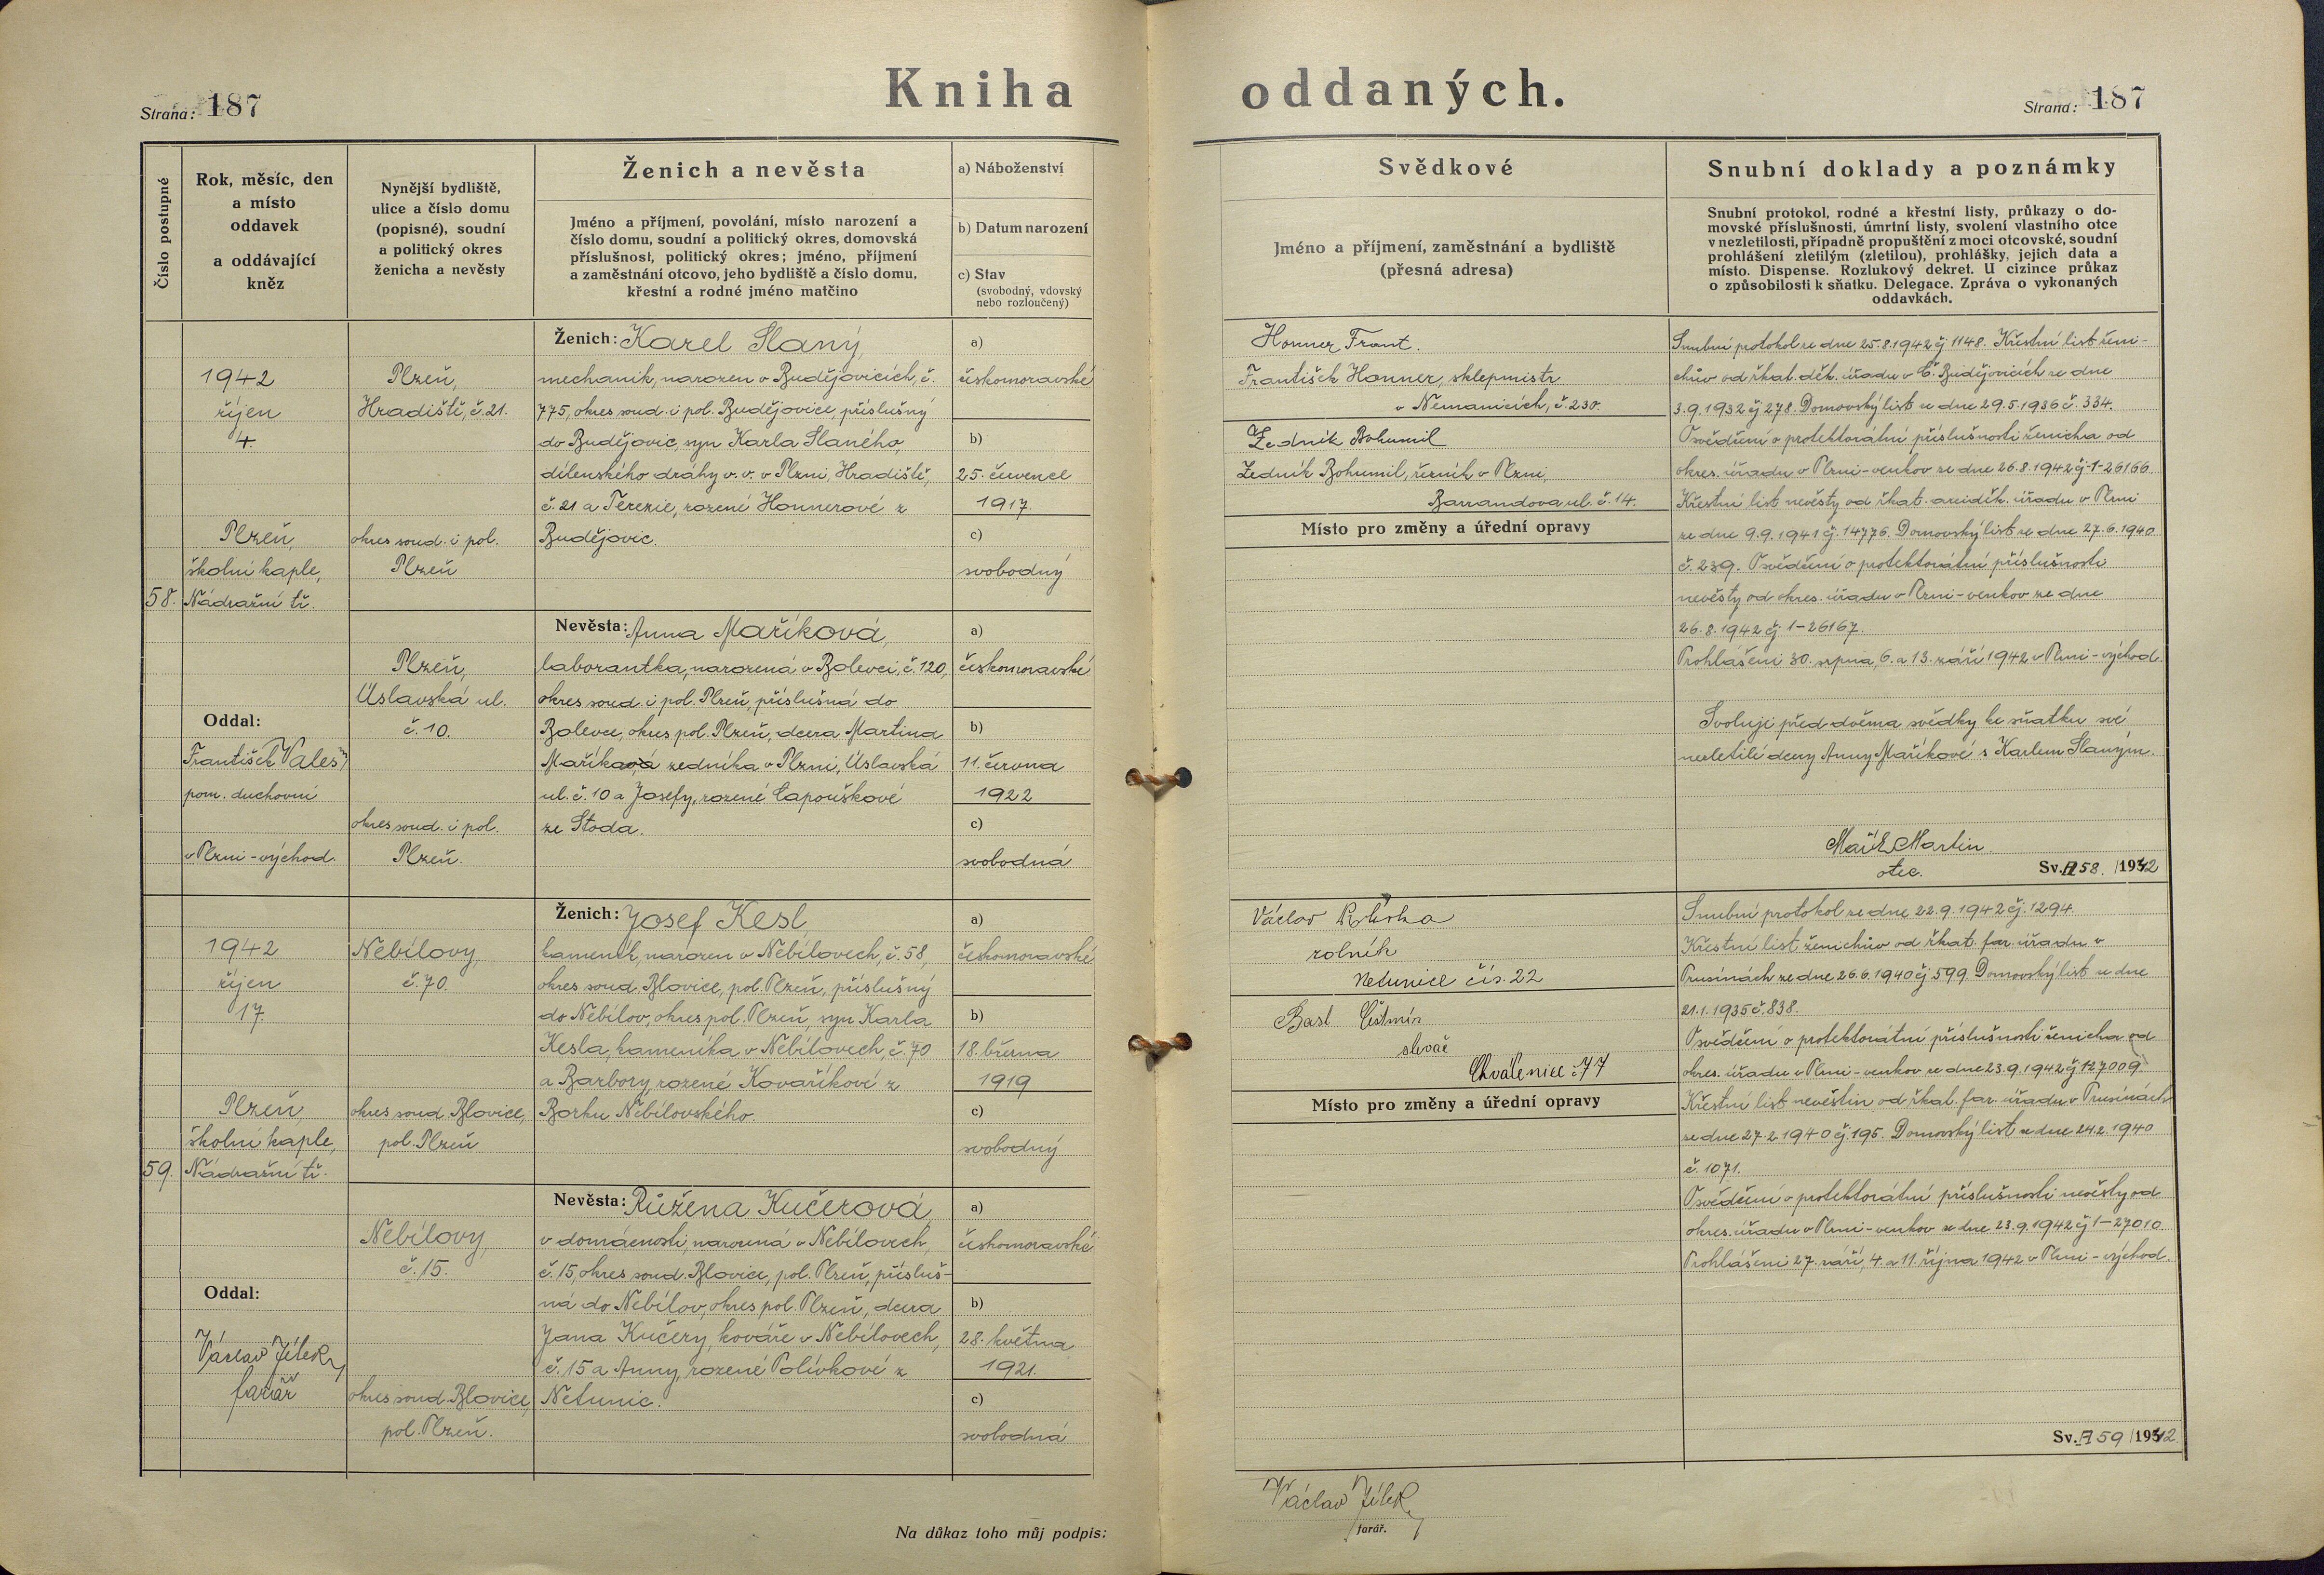 Kniha oddaných.
Strana: 187
Strana: 187
Číslo postupné
Rok, měsíc, den
a místo
oddavek
a oddávající
kněz
Nynější bydliště,
ulice a číslo domu
(popisné), soudní
a politický okres
ženicha a nevěsty
Ženich a nevěsta
Jméno a příjmení, povolání, místo narození a
číslo domu, soudní a politický okres, domovská
příslušnost, politický okres; jméno, příjmení
a zaměstnání otcovo, jeho bydliště a číslo domu,
křestní a rodné jméno matčino
a) Náboženství
b) Datum narození
c) Stav
(svobodný, vdovský
nebo rozloučený)
58.
1942
říjen
4.
Plzeň,
školní kaple,
Nádražní tř.
Oddal:
František Valeš
pom. duchovní
v Plzni-východ.
Plzeň,
Hradiště, č. 21.
okres soud. i pol.
Plzeň
Ženich: Karel Slaný,
mechanik, narozen v Budějovicích, č.
775, okres soud. i pol. Budějovice, příslušný
do Budějovic, syn Karla Slaného,
dílenského dráhy v. v. v Plzni, Hradiště,
č. 21 a Terezie, rozené Honnerové z
Budějovic.
a)
českomoravské
b)
25. července
1917.
c)
svobodný
Plzeň,
Úslavská ul.
č. 10.
okres soud. i pol.
Plzeň.
Nevěsta: Anna Maříková,
laborantka, narozená v Bolevci, č. 120,
okres soud. i pol. Plzeň, příslušná do
Bolevce, okres pol. Plzeň, dcera Martina
Maříka zedníka v Plzni, Úslavská
ul. č. 10 a Josefy, rozené Capouškové
ze Stoda.
a)
českomoravské
b)
11. června
1922
c)
svobodná
59.
1942
říjen
17.
Plzeň,
školní kaple,
Nádražní tř.
Oddal:
Václav Jílek,
farář
Nebílovy,
č. 70.
okres soud. Blovice,
pol. Plzeň
Ženich: Josef Kesl,
kameník, narozen v Nebílovech, č. 58,
okres soud. Blovice, pol. Plzeň, příslušný
do Nebílov, okres pol. Plzeň, syn Karla
Kesla, kameníka v Nebílovech, č. 70
a Barbory, rozené Kovaříkové z
Borku Nebílovského.
a)
českomoravské
b)
18. března
1919
c)
svobodný
Nebílovy,
č. 15.
okres soud. Blovice,
pol. Plzeň.
Nevěsta: Růžena Kučerová,
v domácnosti, narozená v Nebílovech,
č. 15, okres soud. Blovice, pol. Plzeň, přísluš-
ná do Nebílov, okres pol. Plzeň, dcera
Jana Kučery, kováře v Nebílovech,
č. 15 a Anny, rozené Polívkové z
Netunic.
a)
českomoravské
b)
28. května
1921.
c)
svobodná
Na důkaz toho můj podpis:
Svědkové
Jméno a příjmení, zaměstnání a bydliště
(přesná adresa)
Snubní doklady a poznámky
Snubní protokol, rodné a křestní listy, průkazy o do-
movské příslušnosti, úmrtní listy, svolení vlastního otce
v nezletilosti, případně propuštění z moci otcovské, soudní
prohlášení zletilým (zletilou), prohlášky, jejich data a
místo. Dispense. Rozlukový dekret. U cizince průkaz
o způsobilosti k sňatku. Delegace. Zpráva o vykonaných
oddavkách.
Honner Frant.
František Honner, sklepmistr
v Nemanicích, č. 230.
Žedník Bohumil
Žedník Bohumil, řezník v Plzni,
Barrandova ul. č. 14.
Místo pro změny a úřední opravy
Snubní protokol ze dne 25.8.1942 čj 1148. Křestní list ženi-
chův od řkat. děk. úřadu v Č. Budějovicích ze dne
3.9.1932 čj 278. Domovský list ze dne 29.5.1936 č. 334.
Osvědčení o protektorátní příslušnosti ženicha od
okres. úřadu v Plzni-venkov ze dne 26.8.1942 čj-1-26166.
Křestní list nevěsty od řkat. arciděk. úřadu v Plzni
ze dne 9.9.1941 čj. 14776. Domovský list ze dne 27.6.1940
č. 239. Osvědčení o protektorátní příslušnosti
nevěsty od okres. úřadu v Plzni-venkov ze dne
26.8.1942 čj 1-26167.
Prohlášeni 30. srpna, 6. a 13. září 1942 v Plzni-východ.
Svoluji před dvěma svědky ke sňatku své
nezletilé dcery Anny Maříkové s Karlem Slaným.
Mařík Martin
otec.
Sv. A 58. /1942
Václav
rolník
Netunice čís. 22
Basl Čestmír
slevač
Chválenice č. 77
Místo pro změny a úřední opravy
Snubní protokol ze dne 22.9.1942 čj. 1294.
Křestní list ženichův od řkat. far. úřadu v
Prusinách ze dne 26.6.1940 čj 599. Domovský list ze dne
21.1.1935 č. 838.
Osvědčení o protektorátní příslušnosti ženicha od
okres. úřadu v Plzni-venkov ze dne 23.9.1942 čj 127009.
Křestní list nevěstin od řkat. far. úřadu v Prusinách
ze dne 27.2.1940 čj. 195. Domovský list ze dne 24.2.1940
č. 1071.
Osvědčení o protektorátní příslušnosti nevěsty od
okres. úřadu v Plzni-venkov ze dne 23.9.1942 čj 1-27010.
Prohlášeni 27. září, 4. a 11. října 1942 v Plzni-východ.
Sv. A 59 /1942
Václav Jílek,
farář.